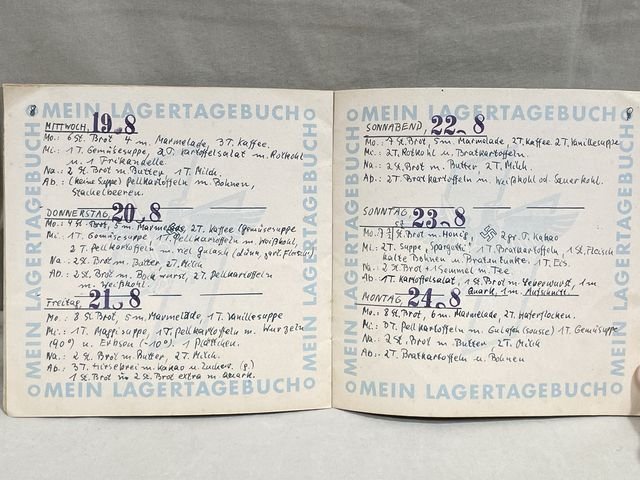 8
MEIN LAGERTAGEBUCH
MEIN LAGERTAGEBUCH
MEIN LAGERTAGEBUCH
MITTWOCH, 19. 8
Mo.: 6 St. Brot 4 m. Marmelade, 3 T. Kaffee.
Mi.: 1 T. Gemüsesuppe, 2 T. Kartoffelsalat m. Rotkohl
u. 1 Frikandelle.
Na.: 2 St. Brot m. Butter, 1 T. Milch.
Ab.: (keine Suppe) Pellkartoffeln m. Bohnen,
Stachelbeeren.
DONNERSTAG, 20. 8
Mo.: 4 St. Brot, 3 m. Marmelade, 2 T. Kaffee (Gemüsesuppe
Mi.: 1 T. Gemüsesuppe, 1 T. Pellkartoffeln m. Weißkohl,
2 T. Pellkartoffeln m. viel Gulasch (dünn, gar. Fleisch)
Na.: 2 St. Brot m. Butter, 2 T. Milch
Ab.: 2 St. Brot m. Bockwurst, 2 T. Pellkartoffeln
m. Weißkohl.
Freitag, 21. 8
Mo.: 8 St. Brot, 5 m. Marmelade, 1 T. Vanillesuppe
Mi.: 1 T. Maggisuppe, 1 T. Pellkartoffeln m. Wurzeln
(90%) u. Erbsen (~10%). 1 Plättchen.
Na.: 2 St. Brot m. Butter, 2 T. Milch.
Ab.: 3 T. Hirsebrei m. Kakao u. Zucker. (g.)
1 St. Brot 2 St. Brot extra m. Quark.
MEIN LAGERTAGEBUCH
MEIN LAGERTAGEBUCH
9
MEIN LAGERTAGEBUCH
MEIN LAGERTAGEBUCH
SONNABEND, 22. 8
Mo.: 7 St. Brot, 5 m. Marmelade, 2 T. Kaffee. 2 T. Vanillesuppe
Mi.: 2 T. Rotkohl u. Bratkartoffeln.
Na.: 2 St. Brot m. Butter, 2 T. Milch.
Ab.: 2 T. Bratkartoffeln m. Weißkohl od. Sauerkohl.
SONNTAG, 23. 8
Mo.: 7½ St. Brot m. Honig, 2 T. Kakao
Mi.: 2 T. Suppe, 1 T. Bratkartoffeln, 1 St. Fleisch
kalte Bohnen u. Bratentunke. 1 T. Eis.
Na.: 2 St. Brot + 1 Semmel m. Tee.
Ab.: 1 T. Kartoffelsalat, 1 St. Brot m. Leberwurst, 1 m.
Quark, 1 m. Aufschnitt.
MONTAG, 24. 8
Mo.: 8 St. Brot, 6 m. Marmelade, 2 T. Haferflocken.
Mi.: 2 T. Pellkartoffeln m. Gulasch (sousse) 1 T. Gemüsesuppe
Na.: 2 St. Brot m. Butter, 2 T. Milch
Ab.: 2 T. Bratkartoffeln u. Bohnen
MEIN LAGERTAGEBUCH